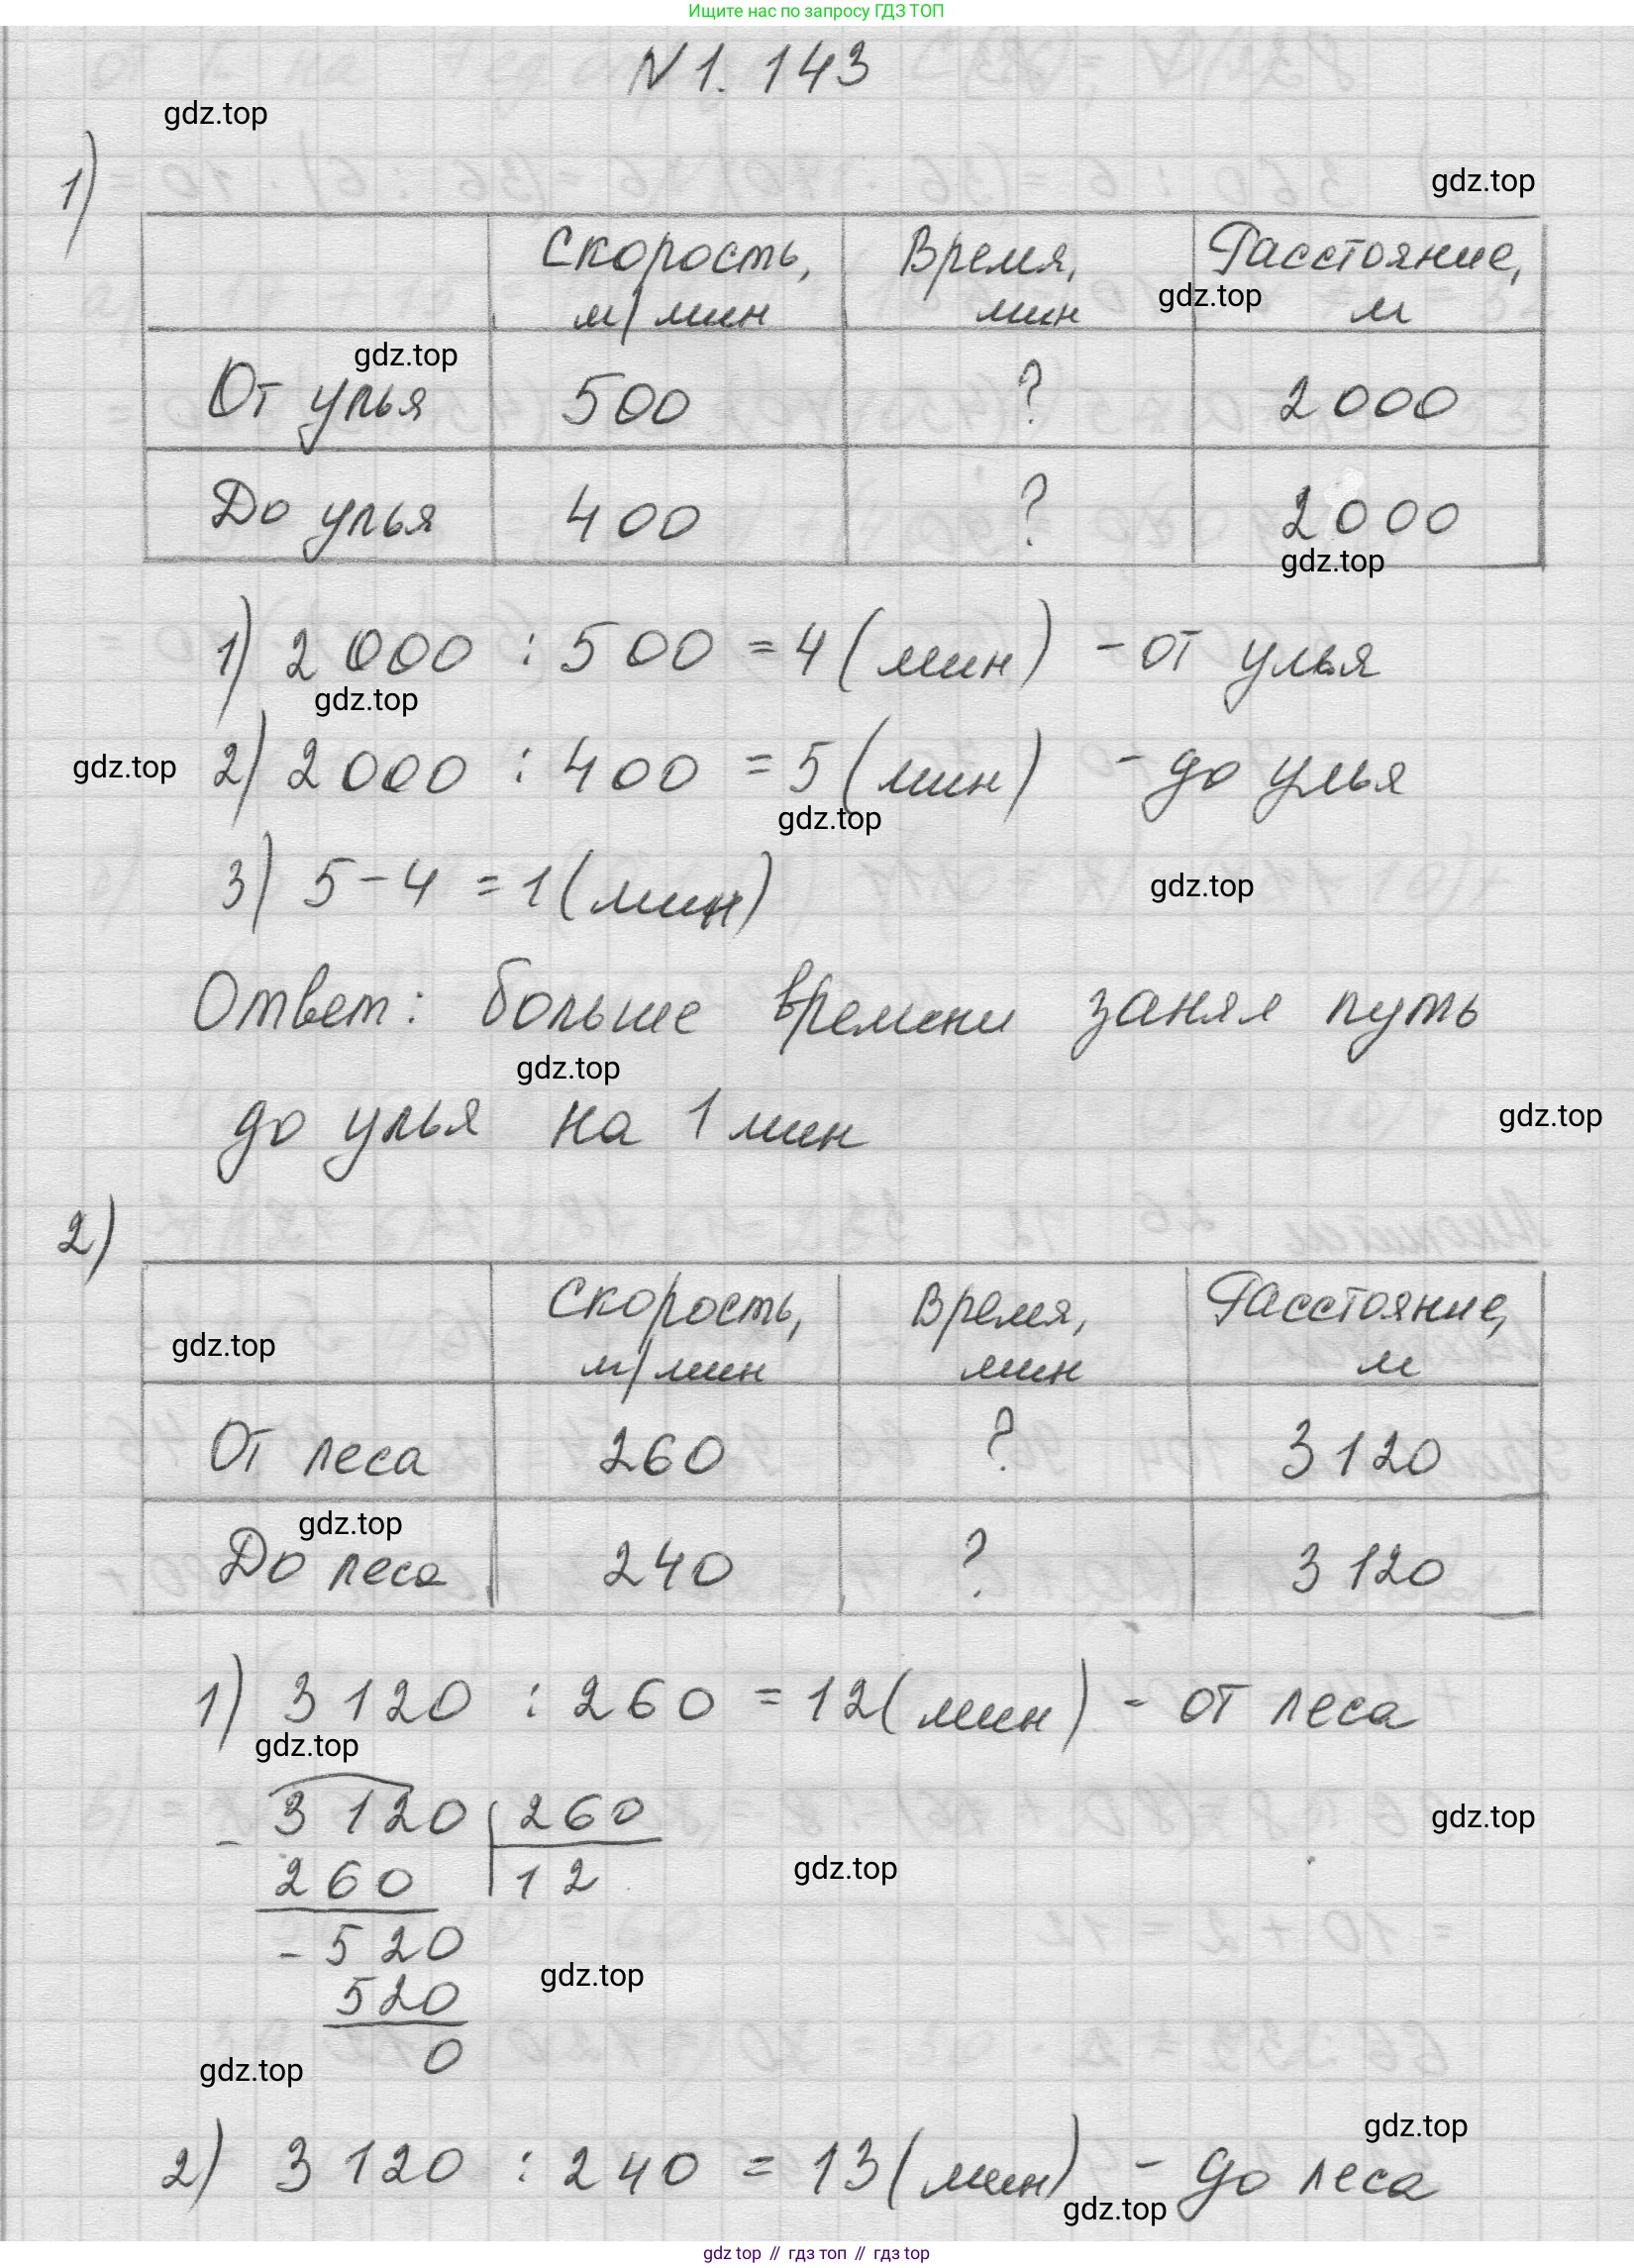 Ищите нас по запросу ГДЗ ТОП
N 1. 143
gdz.top
1)
gdz.top
Скорость, м/мин Время, мин Расстояние, м
gdz.top
gdz.top
От улья 500 ? 2000
До улья 400 ? 2000
gdz.top
1) 2000 : 500 = 4 (мин) - от улья
gdz.top
gdz.top
2) 2000 : 400 = 5 (мин) - до улья
gdz.top
3) 5 - 4 = 1 (мин)
gdz.top
Ответ: больше времени занял путь
gdz.top
до улья на 1 мин
gdz.top
2)
Скорость, м/мин Время, мин Расстояние, м
gdz.top
От леса 260 ? 3120
gdz.top
До леса 240 ? 3120
1) 3120 : 260 = 12 (мин) - от леса
gdz.top
3120 260
gdz.top
- 260 12
gdz.top
- 520
520
gdz.top
0
gdz.top
gdz.top
2) 3120 : 240 = 13 (мин) - до леса
gdz.top
gdz top // гдз топ // гдз top